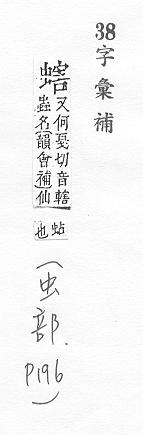 38字彙補
螛
又何戛切音轄
蟲名韻會補仙
蛄
也
(虫部. P196)